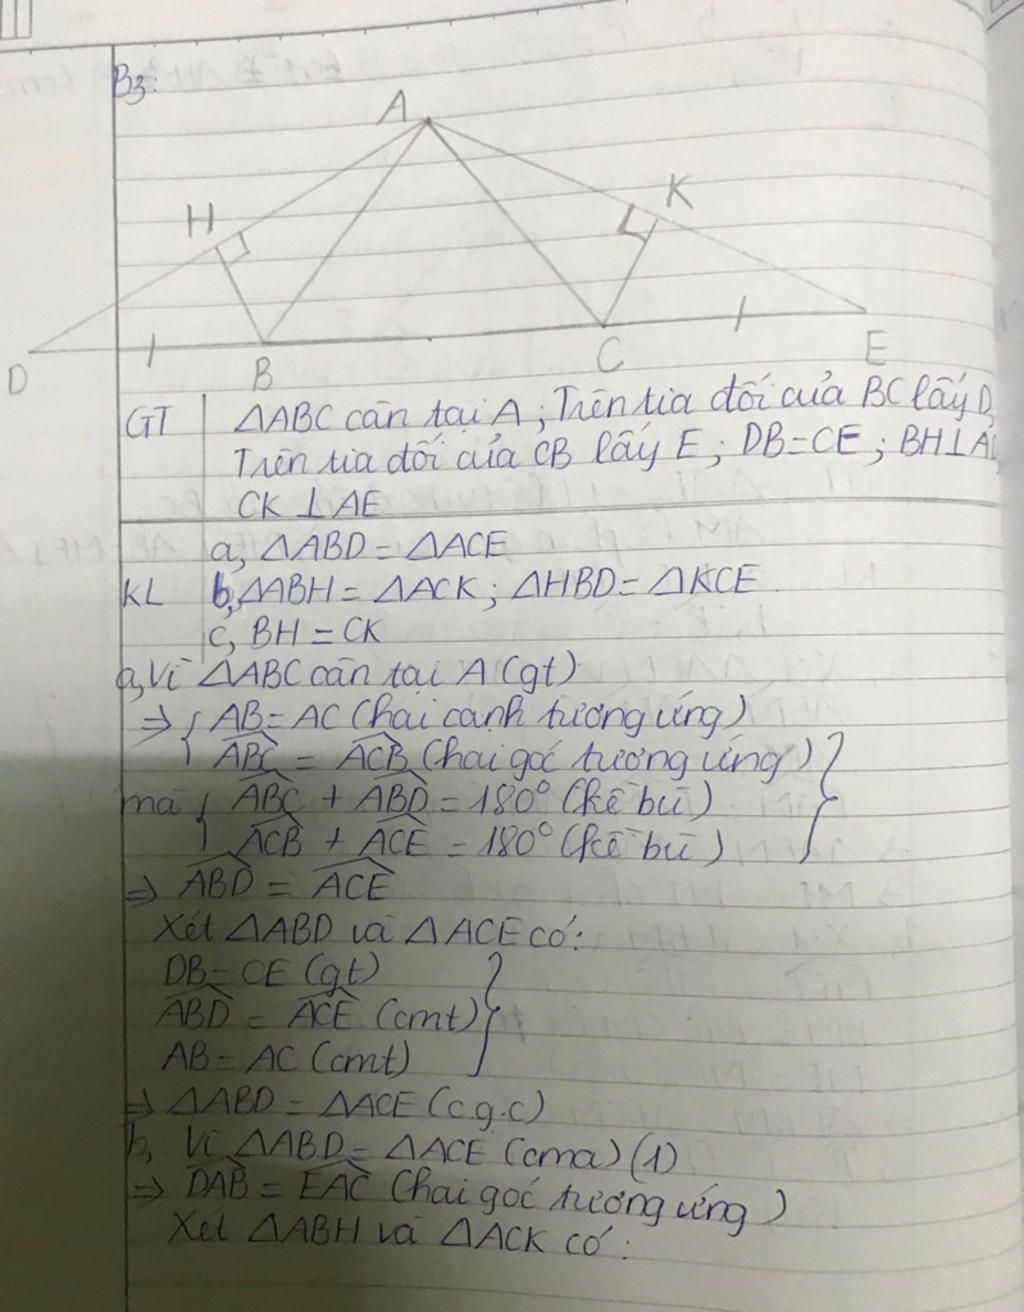 B3:
A
H
K
D
B
C
E
GT ΔABC cân tại A; Trên tia đối của BC lấy D,
Trên tia đối của CB lấy E; DB=CE; BH⊥A
CK ⊥AE
a, ΔABD = ΔACE
KL b, ΔABH = ΔACK; ΔHBD = ΔKCE
c, BH = CK
a, Vì ΔABC cân tại A (gt)
⇒ { AB = AC (hai cạnh tương ứng)
{ \widehat{ABC} = \widehat{ACB} (hai góc tương ứng) }
mà { \widehat{ABC} + \widehat{ABD} = 180° (kề bù)
{ \widehat{ACB} + \widehat{ACE} = 180° (kề bù)
⇒ \widehat{ABD} = \widehat{ACE}
Xét ΔABD và ΔACE có:
DB = CE (gt)
\widehat{ABD} = \widehat{ACE} (cmt) }
AB = AC (cmt)
⇒ ΔABD = ΔACE (c.g.c)
b, Vì ΔABD = ΔACE (cma) (1)
⇒ \widehat{DAB} = \widehat{EAC} (hai góc tương ứng)
Xét ΔABH và ΔACK có: